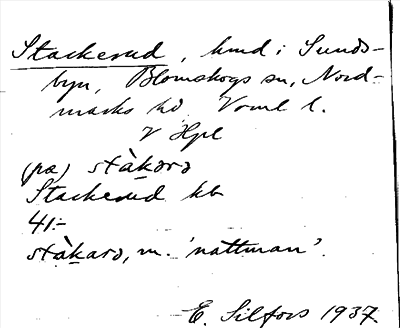 Stackerud, hmd i Sunds-
byn, Blomskogs sn, Nord-
marks hd Verml l.
V Hpl
(pa) stàkarə
Stackerud kb
41:-
stàkarə, m. 'nattman'.
E. Silfors 1937.